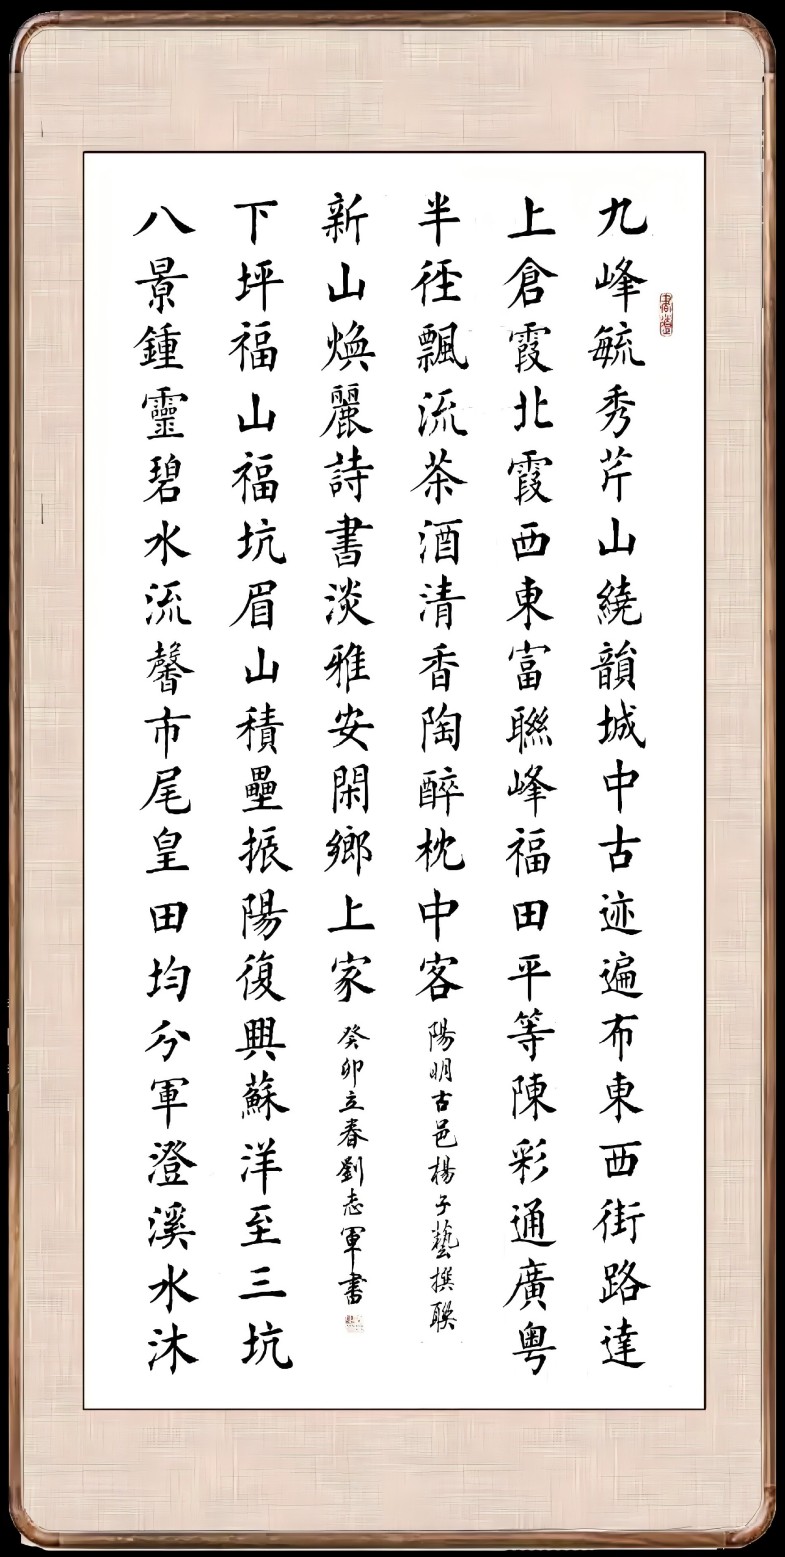 九峰毓秀芹山繞韻城中古迹遍布東西街路達
上倉霞北霞西東富聯峰福田平等陳彩通廣粤
半徑飄流茶酒清香陶醉枕中客
陽明古邑楊子藝撰聯
八景鍾靈碧水流馨市尾皇田均分軍澄溪水沐
下坪福山福坑眉山積壘振陽復興蘇洋至三坑
新山焕麗詩書淡雅安閑鄉上家
癸卯立春劉志軍書